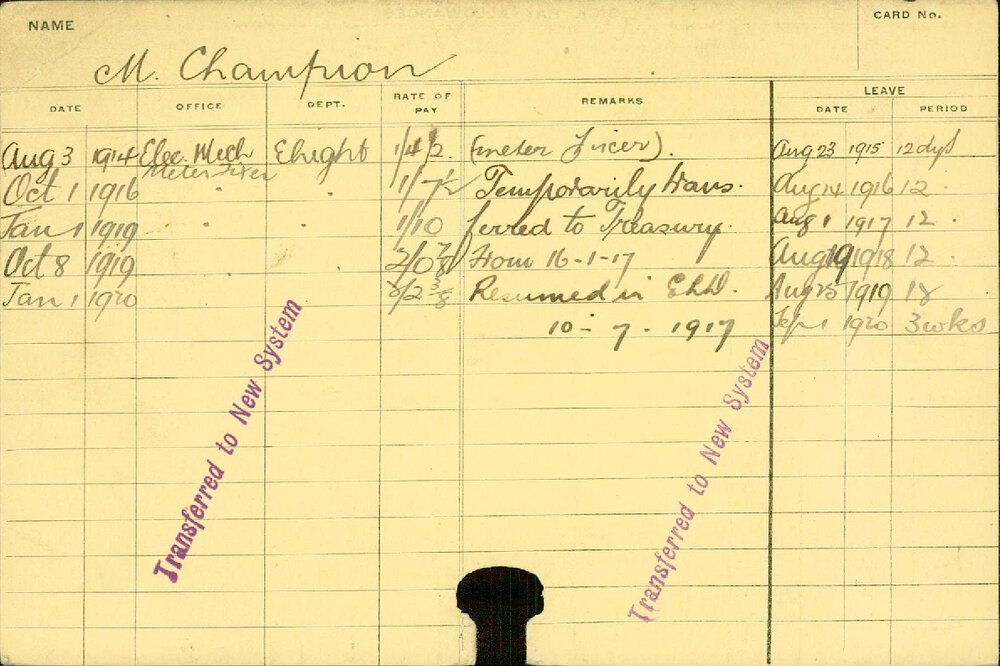 NAME
CARD No.
M. Champion
DATE OFFICE DEPT. RATE OF PAY REMARKS LEAVE
DATE PERIOD
Aug 3 1914 Elec. Mech Elight 1/4½ (meter Fixer). Aug 23 1915 12 dys
Meter Fixer
Oct 1 1916 " " 1/7½ Temporarily trans- Aug 14 1916 12 "
Jan 1 1919 " " 1/10 ferred to Treasury. Aug 1 1917 12 "
Oct 8 1919 " " 2/0⅞ From 16-1-17 Aug 19 1918 12 "
Jan 1 1920 2/2⅜ Resumed in Aug 25 1919 18
10-7-1917 Sep 1 1920 3 wks
Transferred to New System
Transferred to New System